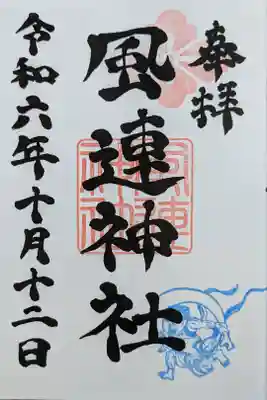 奉拝
風連神社
令和六年十月十二日
風連神社